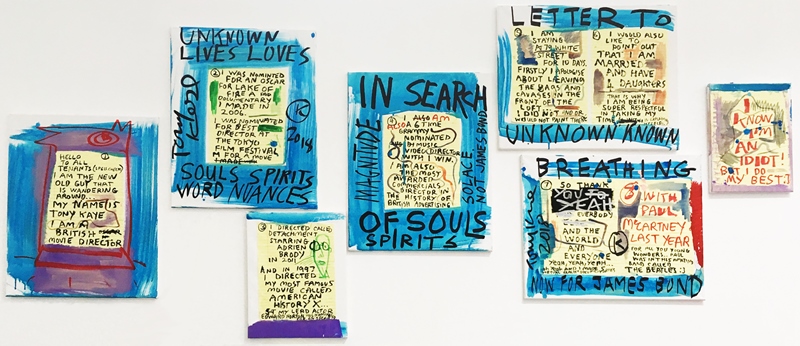 HELLO
TO ALL
TENANTS
I AM THE NEW
OLD GUY THAT
IS WANDERING
AROUND...
MY NAME IS
TONY KAYE
I AM A
BRITISH
MOVIE DIRECTOR
UNKNOWN
LIVES LOVES
② I WAS NOMINTED
FOR AN OSCAR
FOR LAKE OF
FIRE A
DOCUMENTARY
MADE IN
2006.
I WAS NOMINATED
FOR BEST
DIRECTOR
AT THE
TOKYO
FILM FESTIVAL
FOR A MOVE
K
2014
SOULS SPIRITS
WORD NUANCES
③ I DIRECTED CALLED
DETACHMENT
STARRING
ADRIEN
BRODY
IN 2011
AND IN 1997
I DIRECTED
MY MOST FAMOUS
MOVIE CALLED
AMERICAN
HISTORY X...
MY LEAD ACTOR
IN SEARCH
MAGNITUDE
④ I ALSO AM
A 6 TIME
GRAMMY
NOMINATED
MUSIC
VIDEO DIRECTOR
WITH 1 WIN.
I AM ALSO
THE MOST
AWARDED
COMMERCIALS
DIRECTOR IN
THE HISTORY OF
BRITISH ADVERTISING
SOLACE
NOT JAMES BOND
OF SOULS
SPIRITS
LETTER TO
I AM
STAYING
AT 79 WHITE
STREET
FOR 10 DAYS.
FIRSTLY I APOLOGISE
ABOUT LEAVING
THE BAGS AND
CANVASES IN THE
FRONT OF THE
LOFT
I DID NOT
I WOULD ALSO
LIKE TO
POINT OUT
THAT I AM
MARRIED
AND HAVE
DAUGHTERS
THAT IS WHY
I AM BEING
SUPER RESPECTFUL
IN TAKING MY
UNKNOWN KNOWN
BREATHING
⑦ SO THANK
YOU
YEAH
EVERYBODY
AND THE
WORLD
AND
EVERYONE
YEAH, YEAH, YEAH...
K
8 WITH
PAUL
McARTNEY
LAST YEAR
FOR ALL YOU YOUNG
WONDERS.. PAUL
WAS IN THIS
BAND CALLED
THE BEATLES :)
NOW FOR JAMES BOND
I
KNOW
I'M
AN
IDIOT!
BUT I DO
MY BEST :)